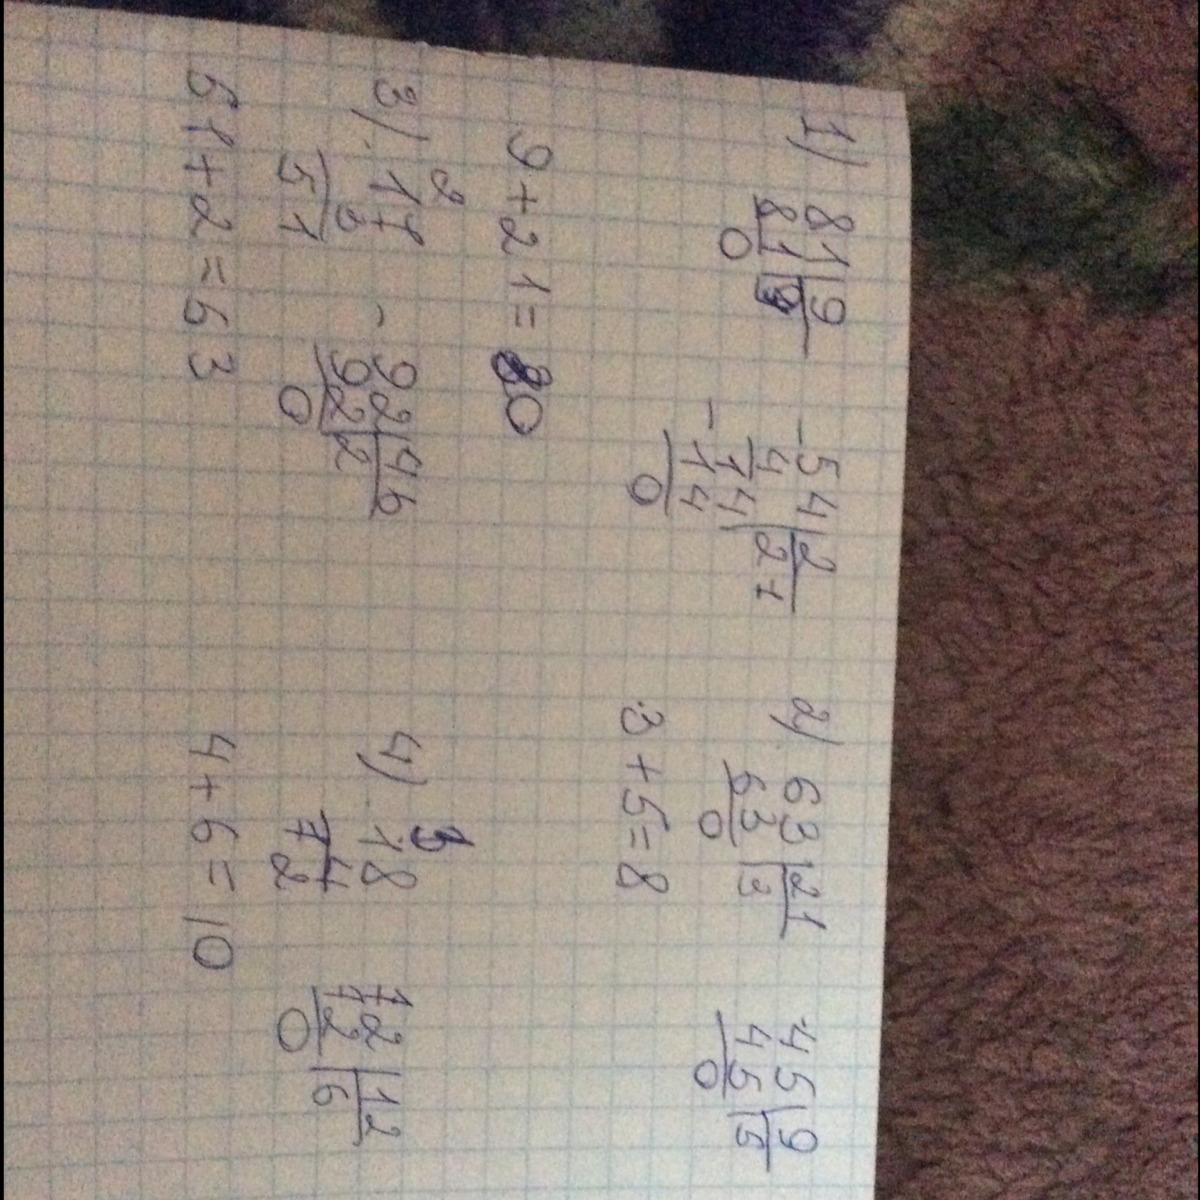 1) 81 | 9
81 | 9
0
- 54 | 2
4 | 21
14
- 14
0
9 + 21 = 30
2) 63 | 21
63 | 3
0
45 | 9
45 | 5
0
3 + 5 = 8
3) 2
17
3
51
- 92 | 46
92 | 2
0
51 + 2 = 53
4) 3
18
4
72
72 | 12
72 | 6
0
4 + 6 = 10